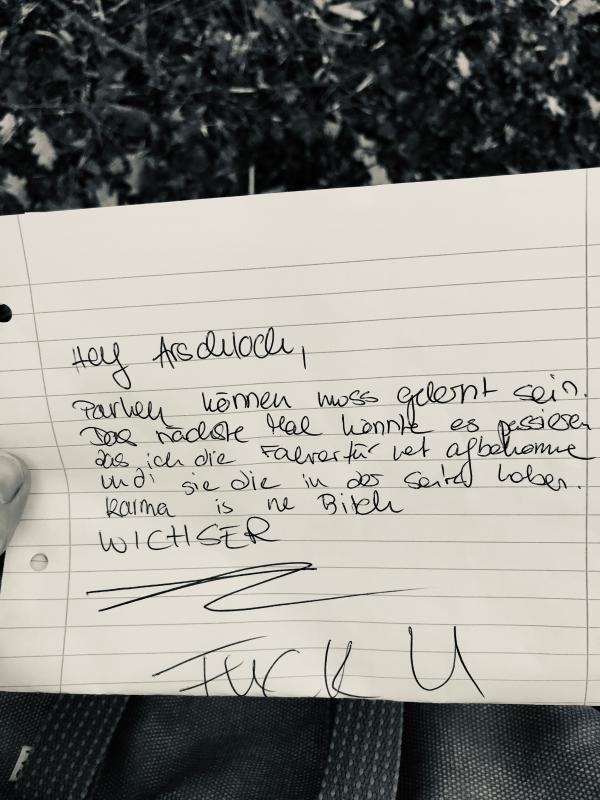 Hey Arschloch,
Parken können muss gelernt sein.
Das nächste Mal könnte es passieren
das ich die Fahrertür net afbekomme
und sie die in der Seite haben.
Karma is ne Bitch
WICHSER
FUCK U